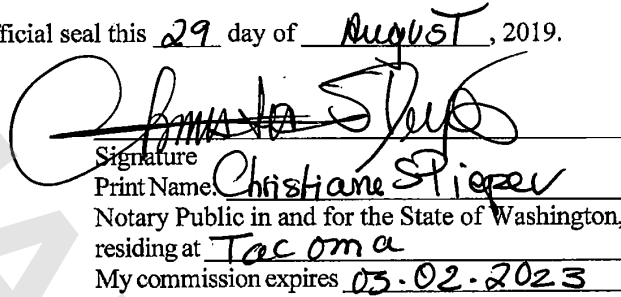 fficial seal this 29 day of August, 2019.
Signature
Print Name: Christiane Stieper
Notary Public in and for the State of Washington,
residing at Tacoma
My commission expires 03-02-2023